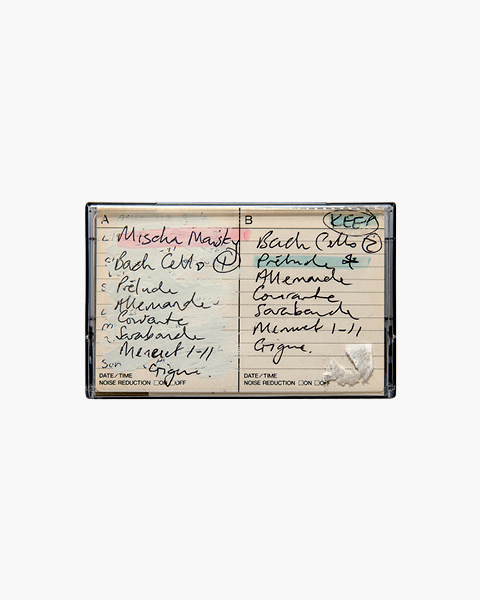 A
Mischa Maisky
Bach Cello 1
Prélude
Allemande
Courante
Sarabande
Menuet 1-11
Gigue.
DATE/TIME
NOISE REDUCTION ☐ON ☐OFF
B
KEEP
Bach Cello 2
Prélude *
Allemande
Courante
Sarabande
Menuet 1-11
Gigue.
DATE/TIME
NOISE REDUCTION ☐ON ☐OFF